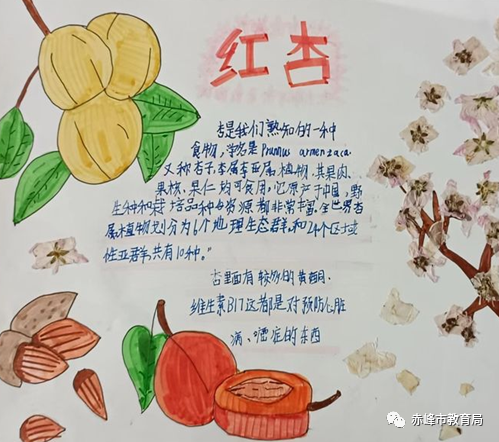 红杏
杏是我们熟知的一种
食物,学名是Prunus armeniaca.
又称杏子,李属李亚属植物,其果肉、
果核、果仁均可食用,它原产于中国,野
生种和栽培品种的资源都非常丰富,全世界杏
属植物划分为6个地理生态群和24个区域
性亚群,共有10种。"
杏里面有较多的黄酮.
维生素B17这都是对预防心脏
病、癌症的东西
赤峰市教育局